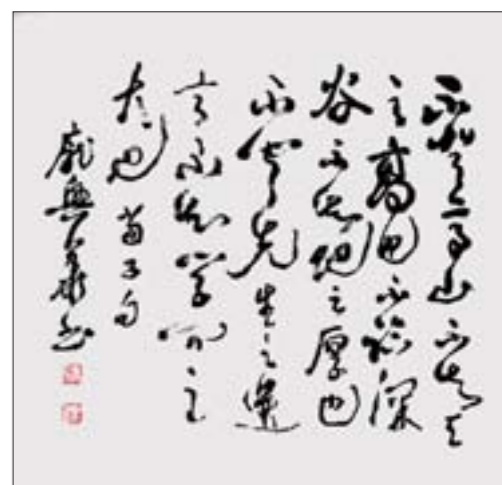 不登高山不知天
之高也不临深
谷不知地之厚也
不闻先生之遗
言不知学问之
大也 荀子句